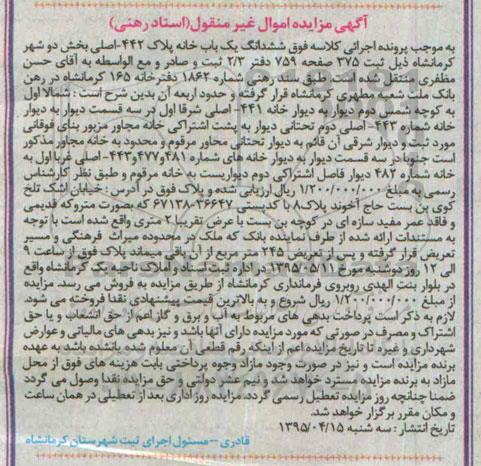 آگهی مزایده اموال غیر منقول(اسناد رهنی)
به موجب پرونده اجرائی کلاسه فوق ششدانگ یک باب خانه پلاک ۴۴۲-اصلی بخش دو شهر
کرمانشاه ذیل ثبت ۳۷۵ صفحه ۷۵۹ دفتر ۲/۳ ثبت و صادر و مع الواسطه به آقای حسن
مظفری منتقل شده است. طبق سند رهنی شماره ۱۸۶۲ دفترخانه ۱۶۵ کرمانشاه در رهن
بانک ملت شعبه مطهری کرمانشاه قرار گرفته و حدود اربعه آن بدین شرح است : شمالا اول
به کوچه شمس دوم دیوار به دیوار خانه ۴۴۱- اصلی شرقا اول در سه قسمت دیوار به دیوار
خانه شماره ۴۴۳- اصلی دوم تحتانی دیوار به پشت اشتراکی خانه مجاور مزبور بنای فوقانی
مورد ثبت و دیوار شرقی آن قائم به دیوار تحتانی مجاور مرقوم و محدود به خانه مجاور مذکور
است جنوبا در سه قسمت دیوار به دیوار خانه های شماره ۴۸۱و۴۷۷و۴۴۳- اصلی غربا اول به
خانه شماره ۴۸۲ دیوار فاصل اشتراکی دوم دیواریست به خانه مرقوم و طبق نظر کارشناس
رسمی به مبلغ ۱/۲۰۰/۰۰۰/۰۰۰ ریال ارزیابی شده و پلاک فوق در آدرس : خیابان اشک تلخ
کوی بن بست حاج آخوند پلاک۸ با کدپستی ۳۶۶۴۷-۶۷۱۳۸ که بصورت متروکه قدیمی
و فاقد عمر مفید سازه ای در کوچه بن بست با عرض تقریبا ۲ متری واقع شده است با توجه
به مستندات ارائه شده از طرف نماینده بانک که ملک در محدوده میراث فرهنگی و مسیر
تعریض قرار گرفته و پس از تعریض ۲۴۵ متر مربع از آن باقی میماند پلاک فوق از ساعت ۹
الی ۱۲ روز دوشنبه مورخ ۱۳۹۵/۰۵/۱۱ در اداره ثبت اسناد و املاک ناحیه یک کرمانشاه واقع
در بلوار بنت الهدی روبروی فرمانداری کرمانشاه از طریق مزایده به فروش می رسد. مزایده
از مبلغ ۱/۲۰۰/۰۰۰/۰۰۰ ریال شروع و به بالاترین قیمت پیشنهادی نقدا فروخته می شود.
لازم به ذکر است پرداخت بدهی های مربوط به آب و برق و گاز اعم از حق انشعاب و یا حق
اشتراک و مصرف در صورتی که مورد مزایده دارای آنها باشد و نیز بدهی های مالیاتی و عوارض
شهرداری و غیره تا تاریخ مزایده اعم از اینکه رقم قطعی آن معلوم شده یانشده باشد به عهده
برنده مزایده است و نیز در صورت وجود مازاد وجوه پرداختی بابت هزینه های فوق از محل
مازاد به برنده مزایده مسترد خواهد شد و نیم عشر دولتی و حق مزایده نقدا وصول می گردد
ضمنا چنانچه روز مزایده تعطیل رسمی گردد، مزایده روز اداری بعد از تعطیلی در همان ساعت
و مکان مقرر برگزار خواهد شد.
تاریخ انتشار : سه شنبه ۱۳۹۵/۰۴/۱۵
قادری -مسئول اجرای ثبت شهرستان کرمانشاه